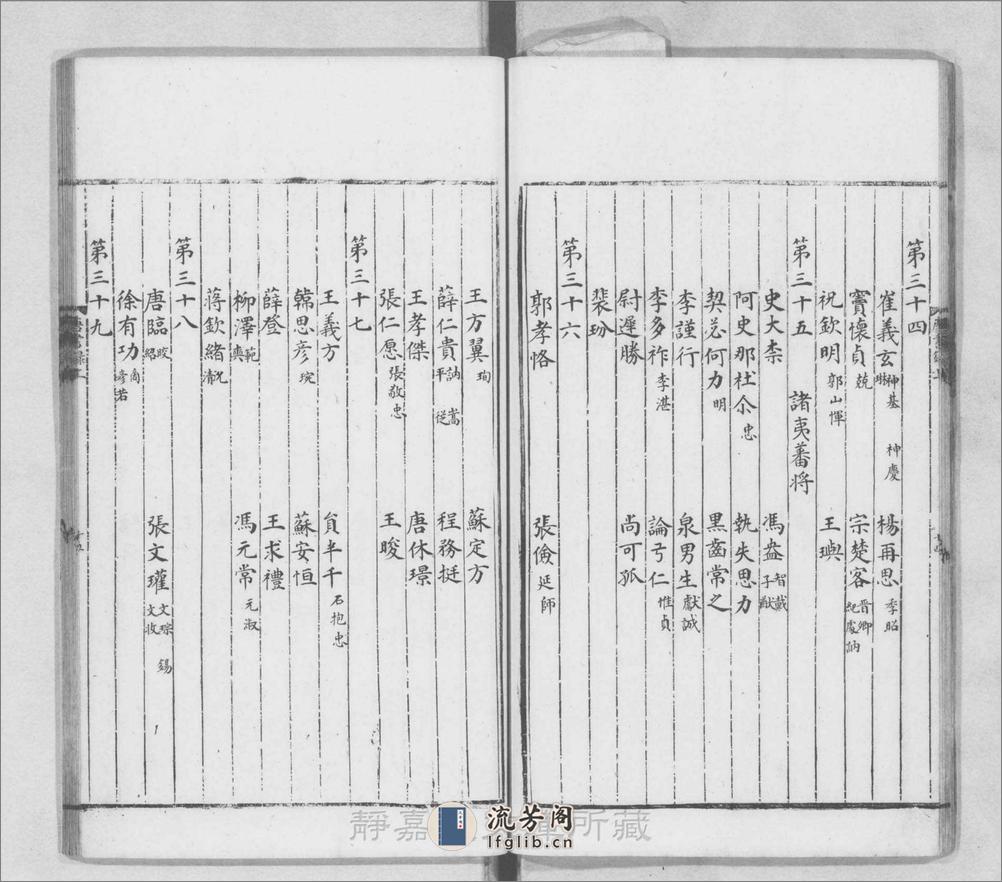 第三十四
崔義玄 神基 琳 神慶 楊再思 季昭
竇懷貞 兢 宗楚客 晋卿 紀處訥
祝欽明 郭山惲 王璵
第三十五 諸夷蕃将
史大柰 馮盎 智戴 子猷
阿史那社尒 忠 執失思力
契苾何力 明 黒齒常之
李謹行 泉男生 獻誠
李多祚 李湛 論弓仁 惟貞
尉遲勝 尚可孤
裴玢
第三十六
郭孝恪 張儉 延師
王方翼 珣 蘇定方
薛仁貴 訥 嵩 平 從 程務挺
王孝傑 唐休璟
張仁愿 張敬忠 王晙
第三十七
王義方 貟半千 石抱忠
韓思彦 琬 蘇安恒
薛登 王求禮
柳澤 範 奭 馮元常 元淑
蔣欽緒 沇 清
第三十八
唐臨 皎 紹 張文瓘 文琮 錫 文收
徐有功 商 彦若
第三十九
靜嘉 所藏
流芳阁
lfglib.cn